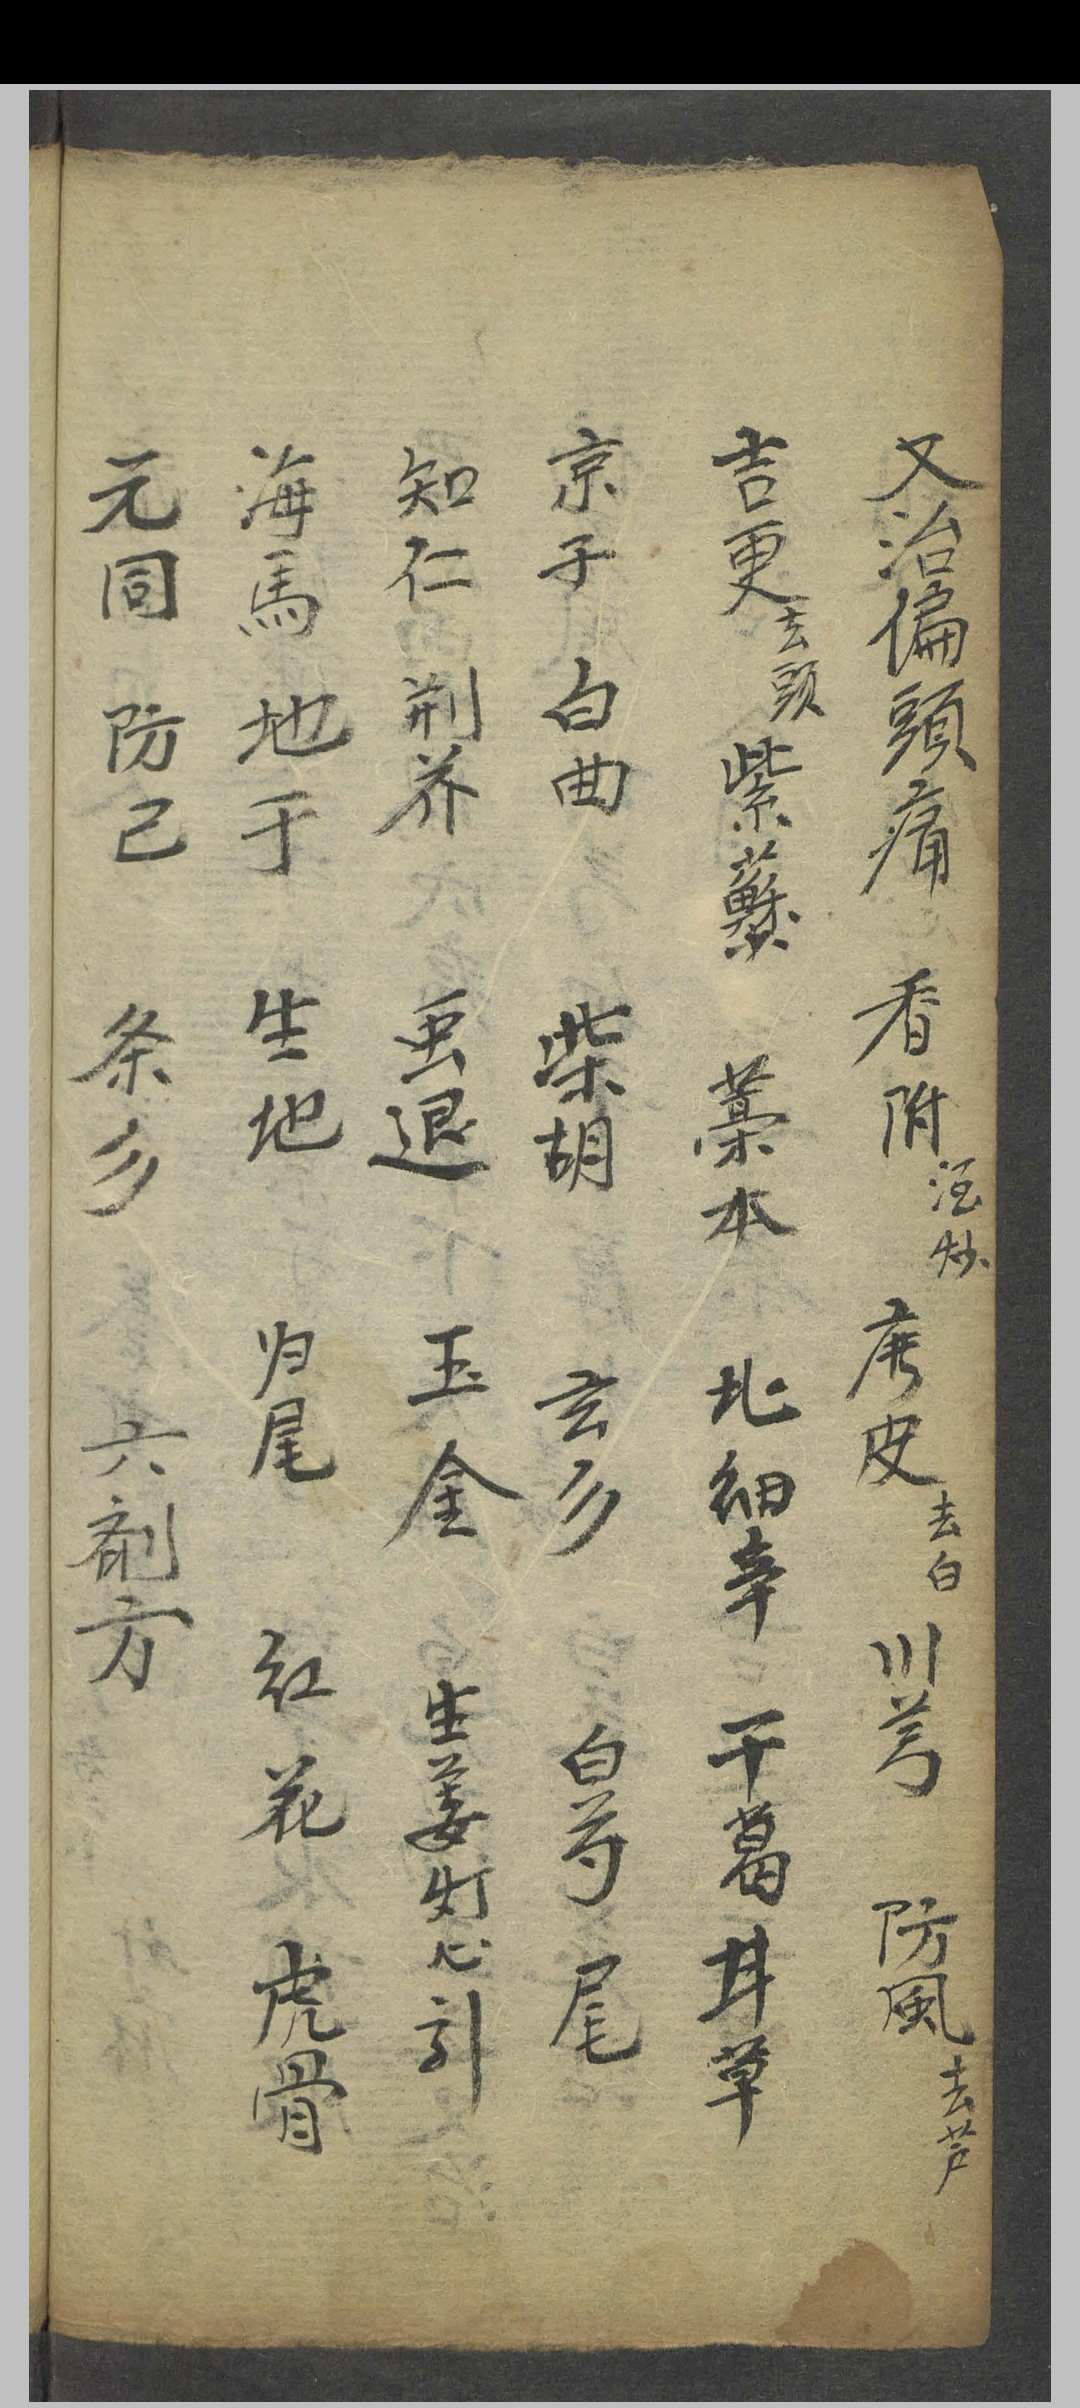 又治偏頭痛 香附 酒炒 陳皮 去白 川芎 防風 去芦
吉更 去頭 紫蘇 藁本 北細辛 干葛 甘草
京子 白曲 柴胡 玄彡 白芍尾
知仁 荆芥 虫退 玉金 生姜灯心引
海馬 地于 生地 归尾 红花 虎骨
元同 防己 条彡 六剤方